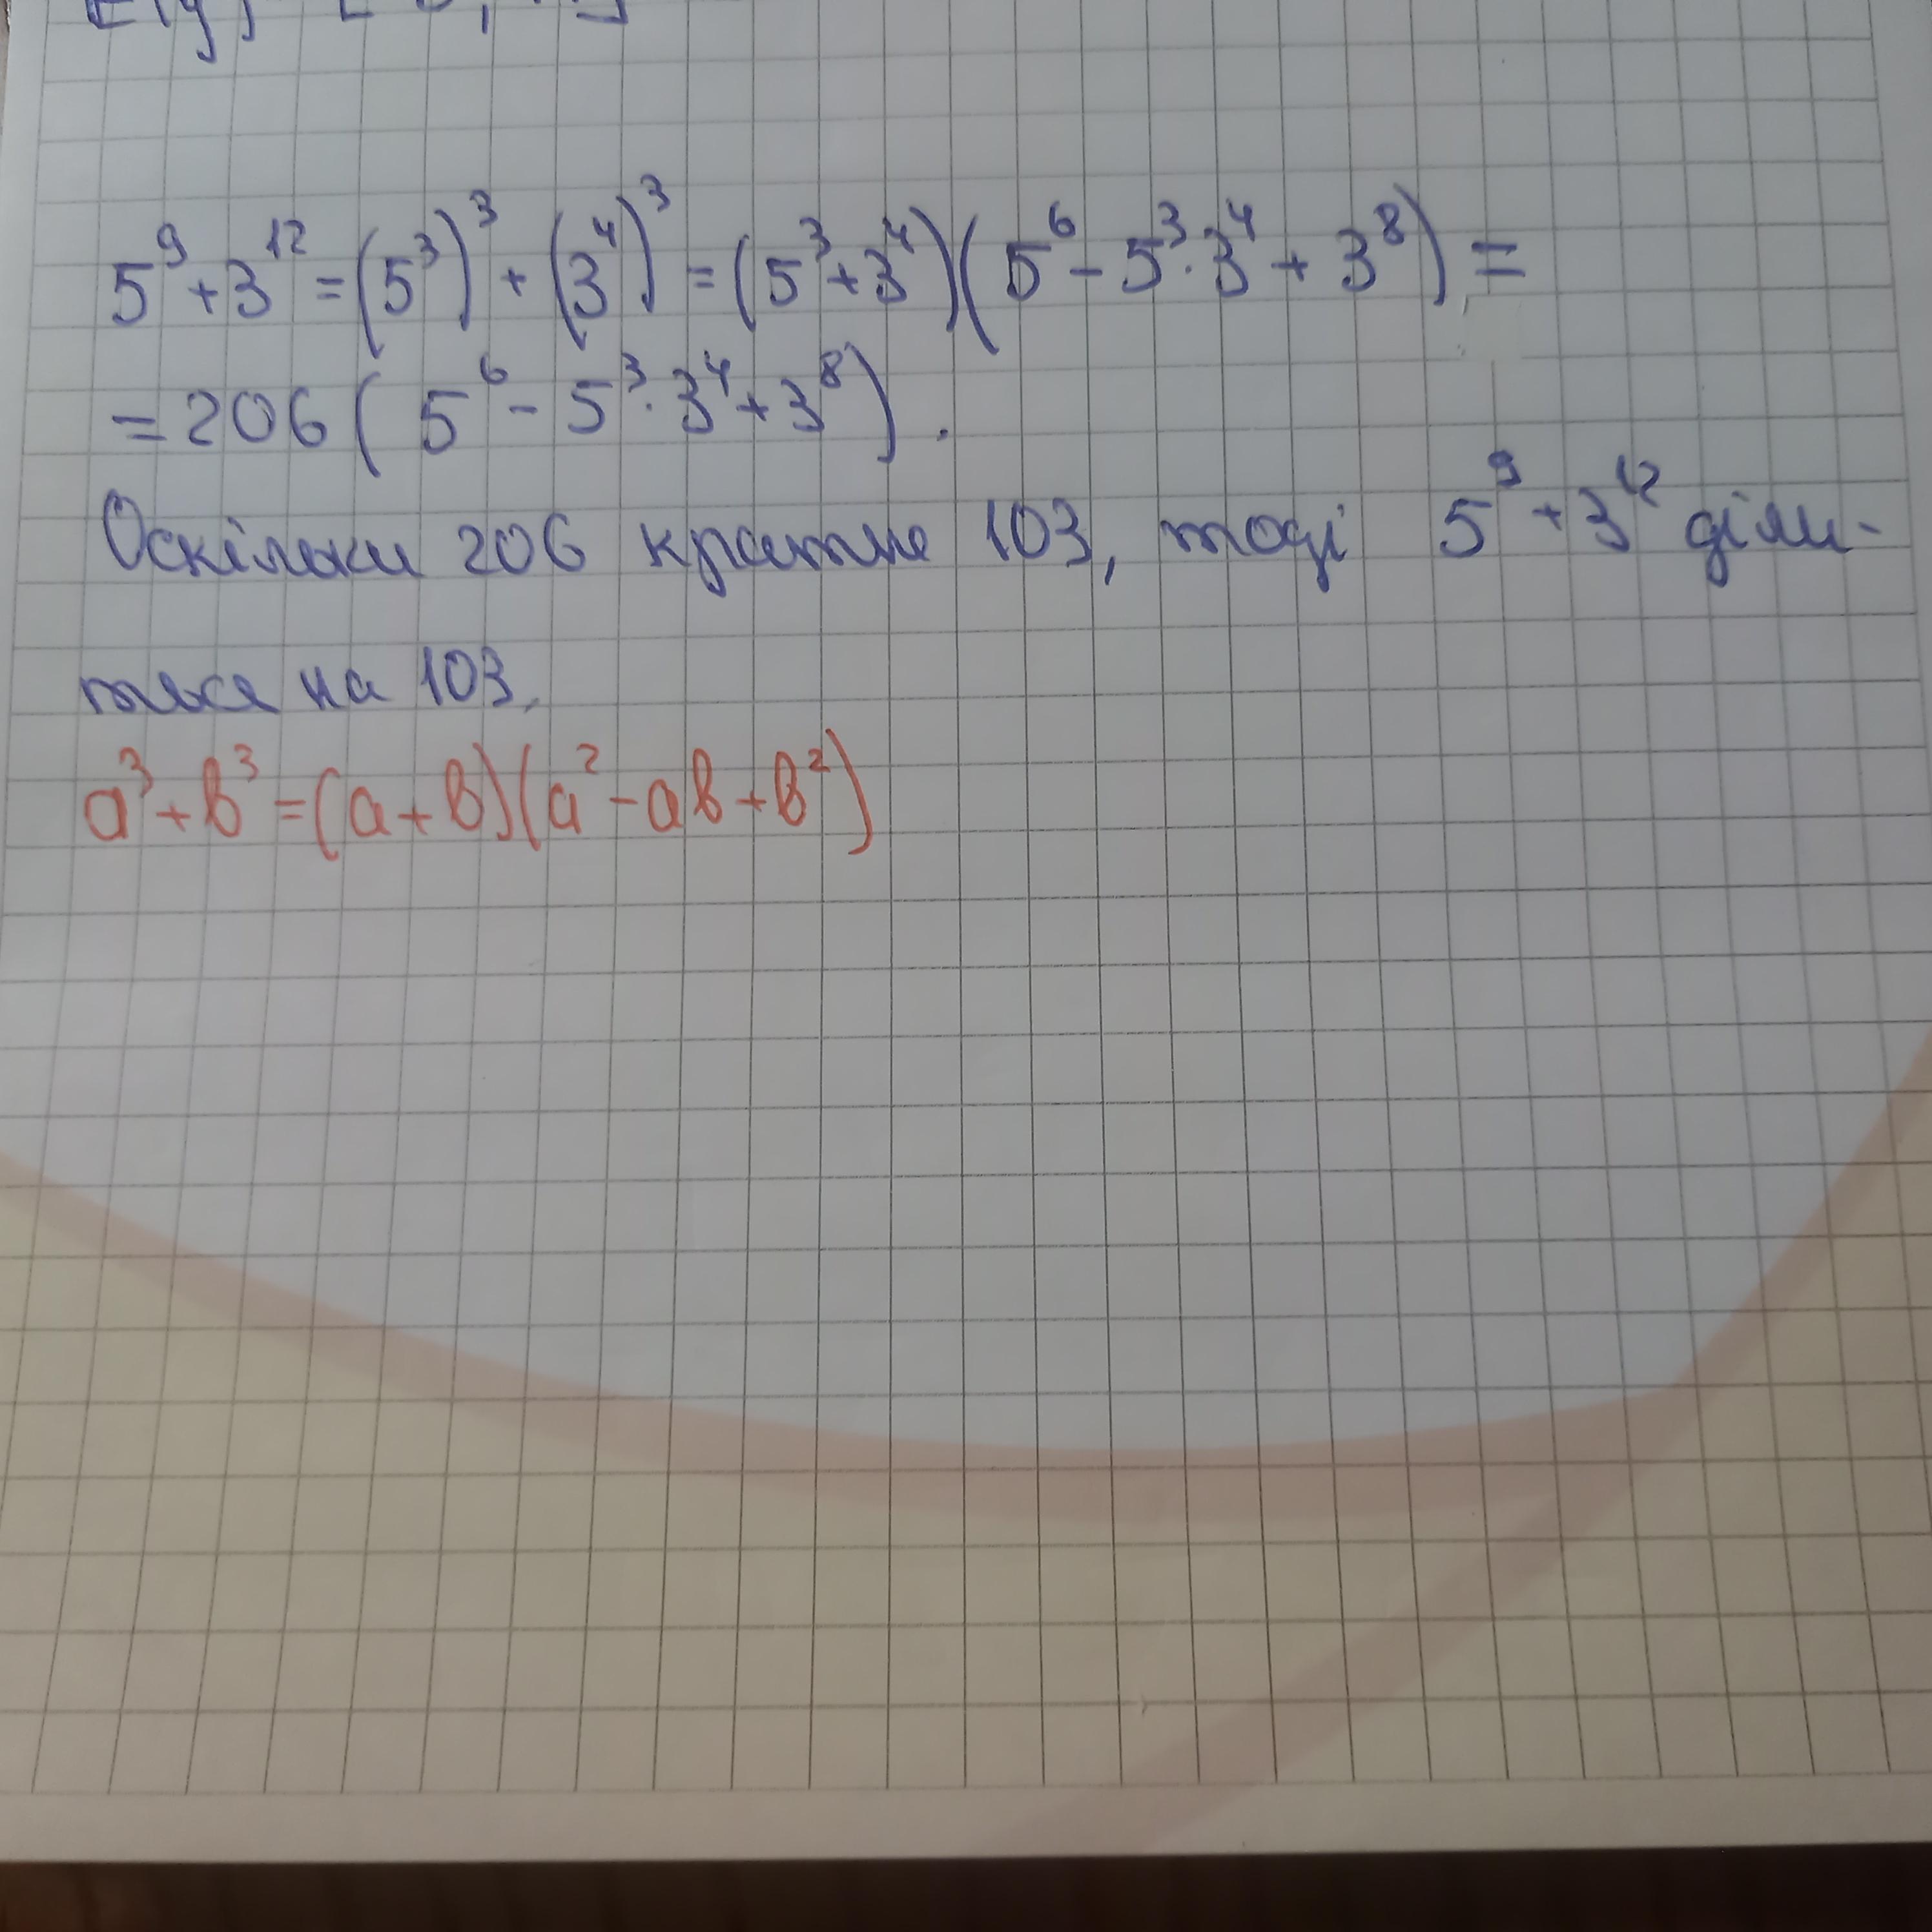 5⁹+3¹²=(5³)³+(3⁴)³=(5³+3⁴)(5⁶-5³·3⁴+3⁸)=
=206(5⁶-5³·3⁴+3⁸).
Оскільки 206 кратне 103, тоді 5⁹+3¹² діли-
ться на 103.
a³+b³=(a+b)(a²-ab+b²)